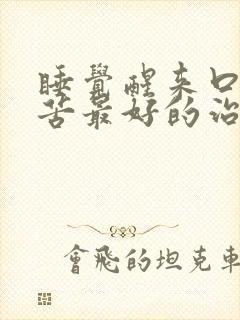 睡覺醒來口
苦最好的治
會飛的坦克車